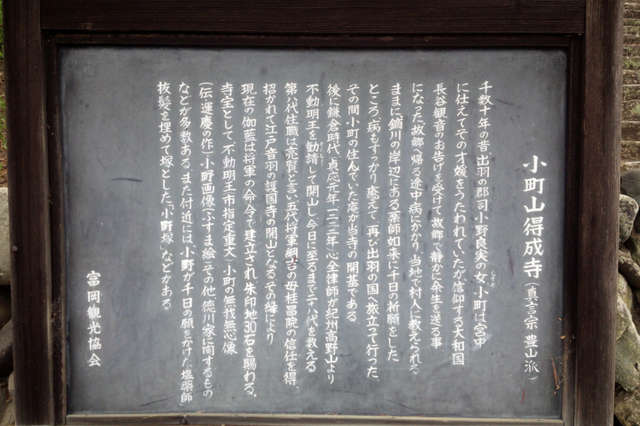 小町山得成寺(真言宗 豊山派)
千数十年の昔出羽の郡司小野良実の女、小町は宮中
に仕えてその才媛をうたわれていたが信仰する大和国
長谷観音のお告げを受けて故郷で静かに余生を送る事
になった故郷へ帰る途中病にかかり当地で村人に教えられる
ままに鏑川の岸辺にある薬師如来に千日の祈願をした
ところ病もすっかり癒えて再び出羽の国へ旅立って行った
その間小町の住んでいた庵が当寺の開基である
後に鎌倉時代貞応元年一二二二年心全律師が紀州高野山より
不動明王を勧請して開山し今日に至るまで二十八代を数える
第八代住職は亮賢と言い五代将軍綱吉の母桂昌院の信任を得、
招かれて江戸音羽の護国寺の開山となるその縁により
現在の伽藍は将軍の命令で建立され朱印地30石を賜わる、
寺宝として、不動明王市指定重文、小町の無我無心像
(伝運慶の作)小野画像(ふすま絵)その他、徳川家に関するもの
などが多数あるまた付近には、小野が千日の願をかけた塩薬師
抜髪を埋めて塚とした、小野塚、などがある。
富岡観光協会